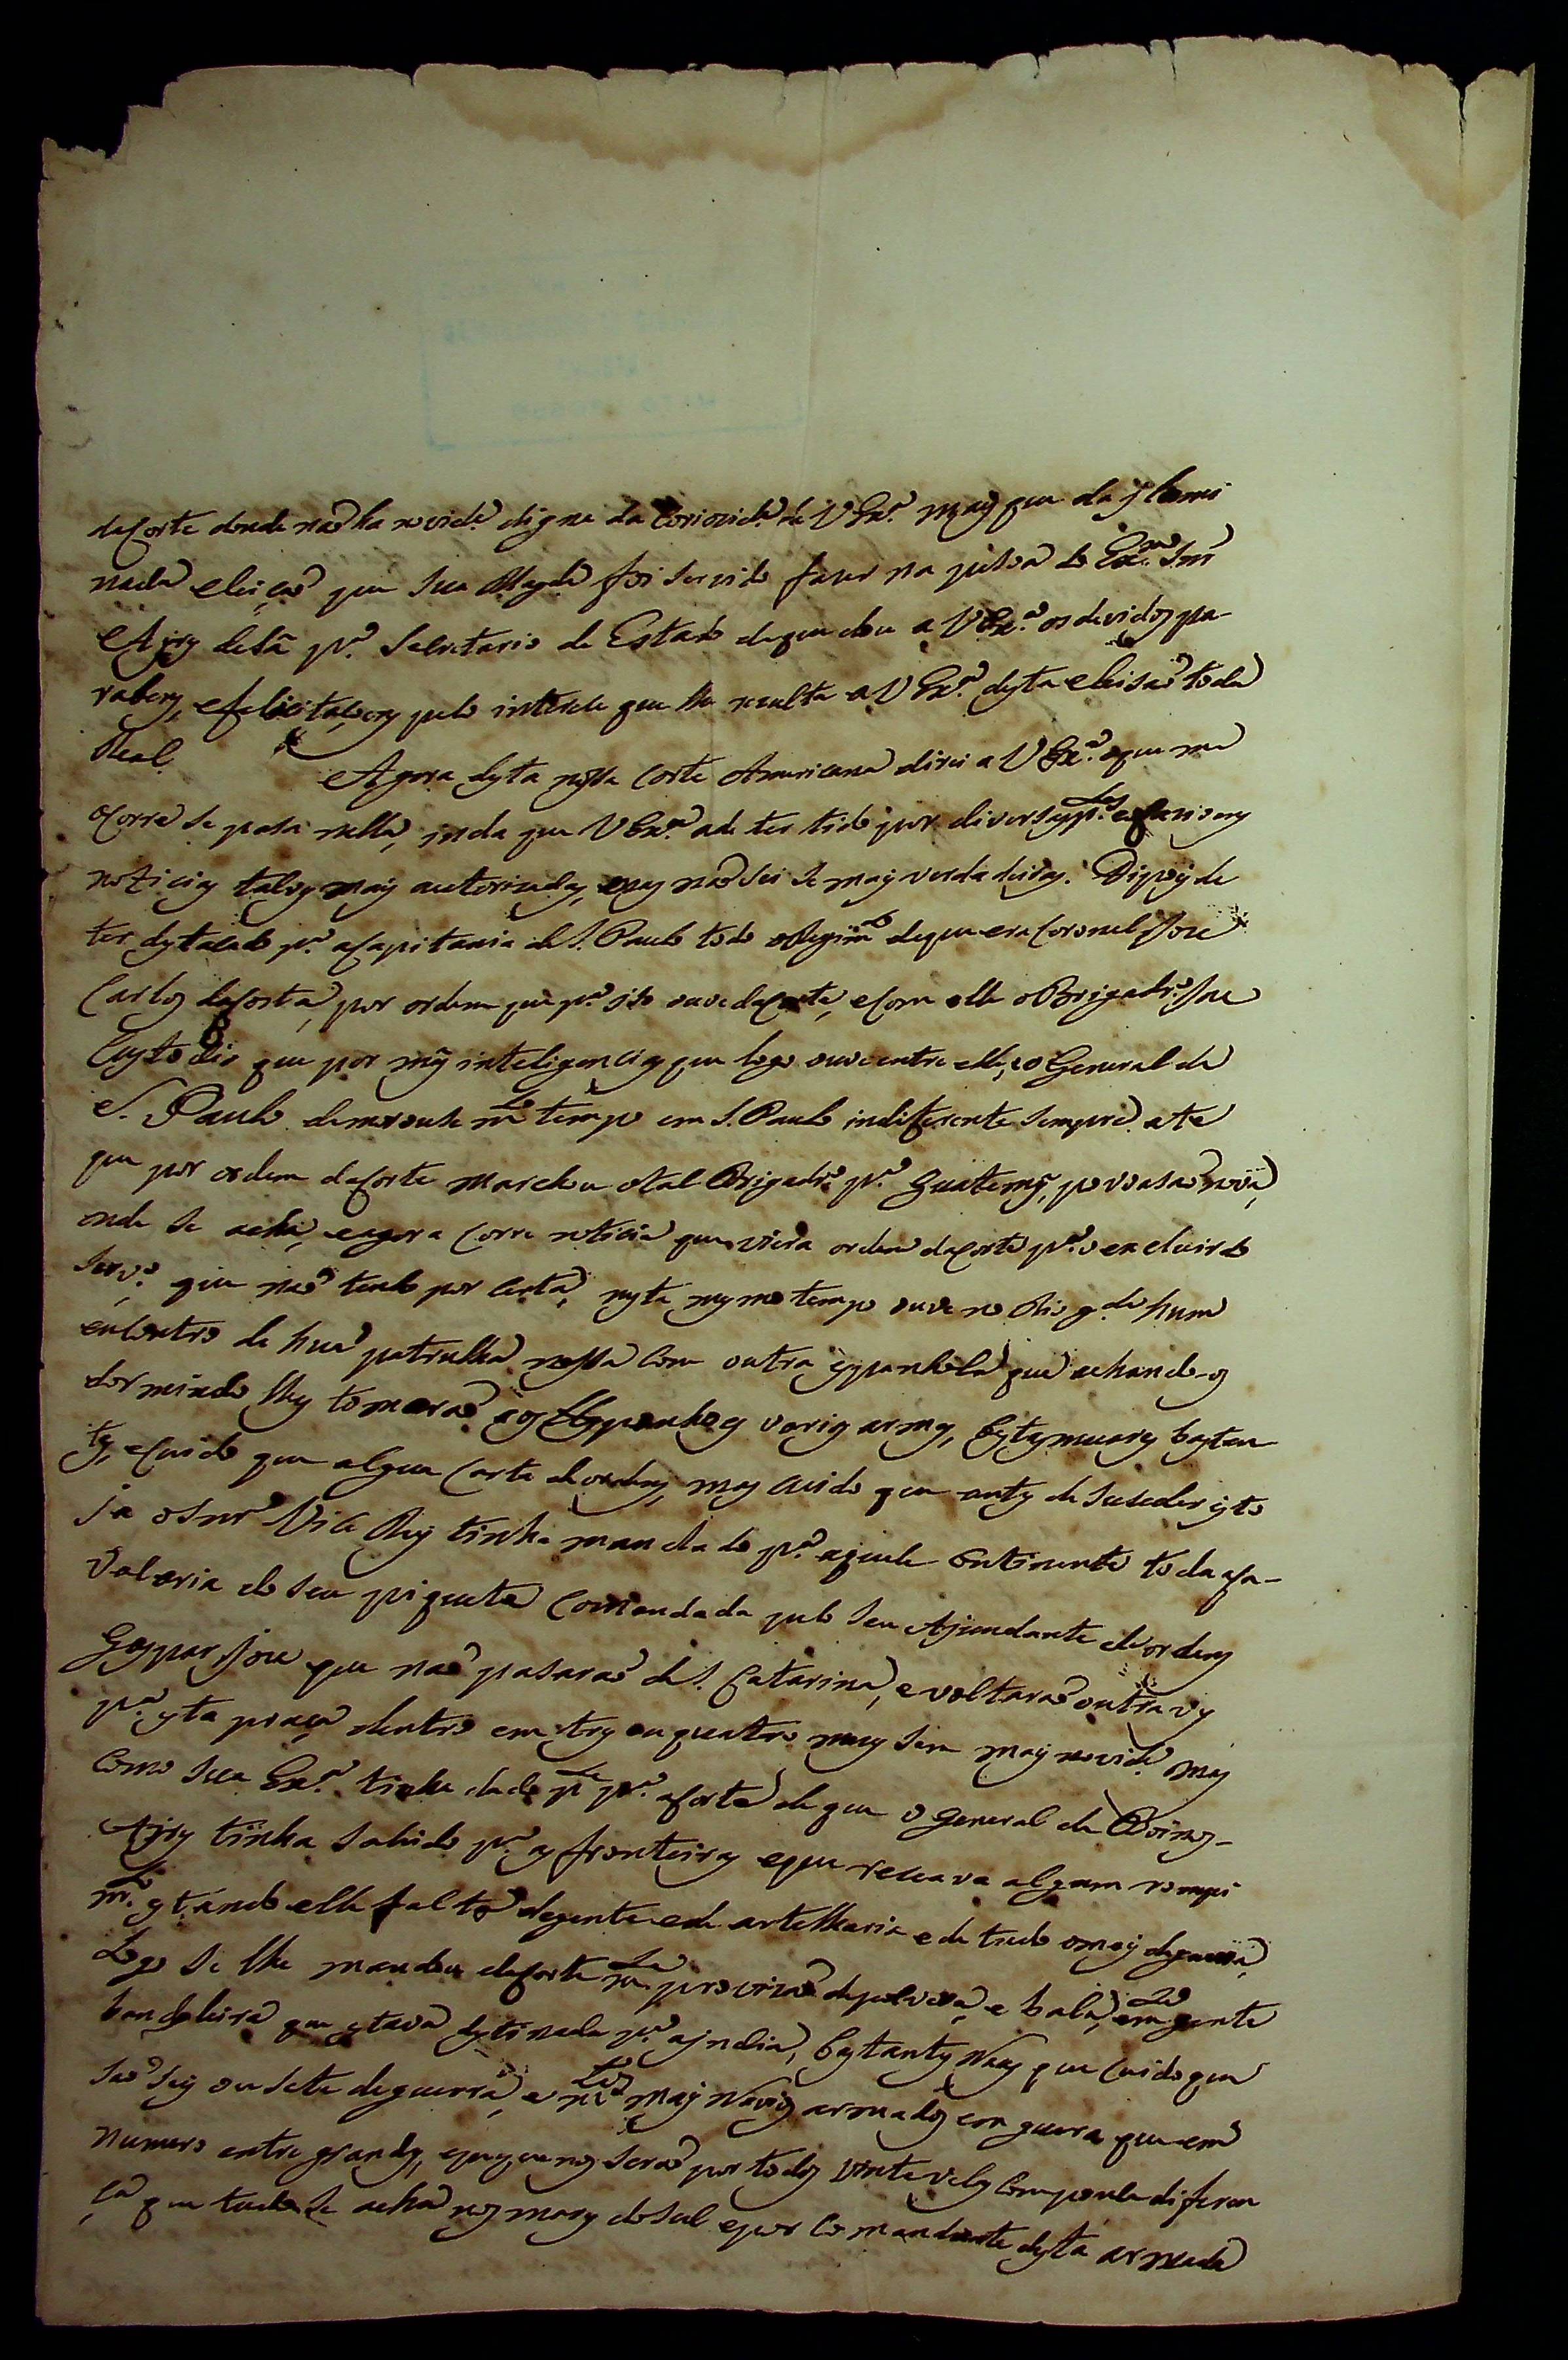 da Corte donde naõ ha novid.e digna da Coriozid.e de V Ex.a mais que da
nada eleiçaõ que Sua Magde foi servido fazer na pesoa do Ex.mo Snr
Ayres de Sâ p.a Secretario de Estado de que dou a V Ex.a os devidos pa-
rabens, e felicitaçoens pelo interese que lhe rezulta a V Ex.a desta eleisaõ toda
Real. Agora desta nossa Corte Americana direi a V Ex.a o que me
ocorre se pasa nella, inda que V Ex.a ade ter tido por diversas p.tes
noticias talves mais autorizadas, mas naõ sei se mais verdadeiras. Dipois de
ter destacado p.a a Capitania de S. Paulo todo o Regim.to de que era Coronel Joze
Carlos da Costa, por ordem que p.a iso ouve da Corte, e Com elle o Brigadr.o Joze
Custodio que por más inteligencias que logo ouve entre elle, e o General de
S. Paulo demorouse m.to tempo em S. Paulo indiferente sempre ate
que por ordem da Corte marchou o tal Brigadr.o p.a Guatemy, povoasaõ nova,
onde se acha, e agora Corre noticia que viera ordem da Corte p.a o excluir do
serv.o que naõ tenho por Certa, nesta mesmo tempo ouve no Rio g.de hum
encontro de hua patrulha nossa Com outra espanhola que achando-os
dormindo lhes tomaraõ aos Espanhoes varias armas, bestas muares bastan-
tes, e Cuido que algua Carta de ordens, mas Cuido que antes de suseder isto
ja o Snr Vice Rey tinha mandado p.a aquele Continente toda a Ca-
valaria do seu piquete Comandada pelo seu Ajundante de ordens
Gaspar Joze que naõ pasaraõ de S. Catarina, e voltaraõ outra ves
p.a esta praça dentro em tres ou quatro mezes sem mais novid.e mas
Como Sua Ex.a tinha dado p.te p.a a Corte de que o General de Boinos-
Ayres tinha sahido p.a as fronteiras e que receava algum rompi
m.to estando elle falto de gente e de artelharia e de tudo o mais de guerra,
Logo se lhe mandou da Corte m.ta provizaõ de polvora, e bala, e m.ta gente
bandoleira que estava destinada p.a a India, bastantes Naos que Cuido que
saõ seis ou sete de guerra, e m.tos mais Navios armados em guerra que em
numero entre grandes, e pequenos seraõ por todos vinte velas Com pouca diferen
ça que tudo se acha nos mares do Sul e por Comandante desta armada